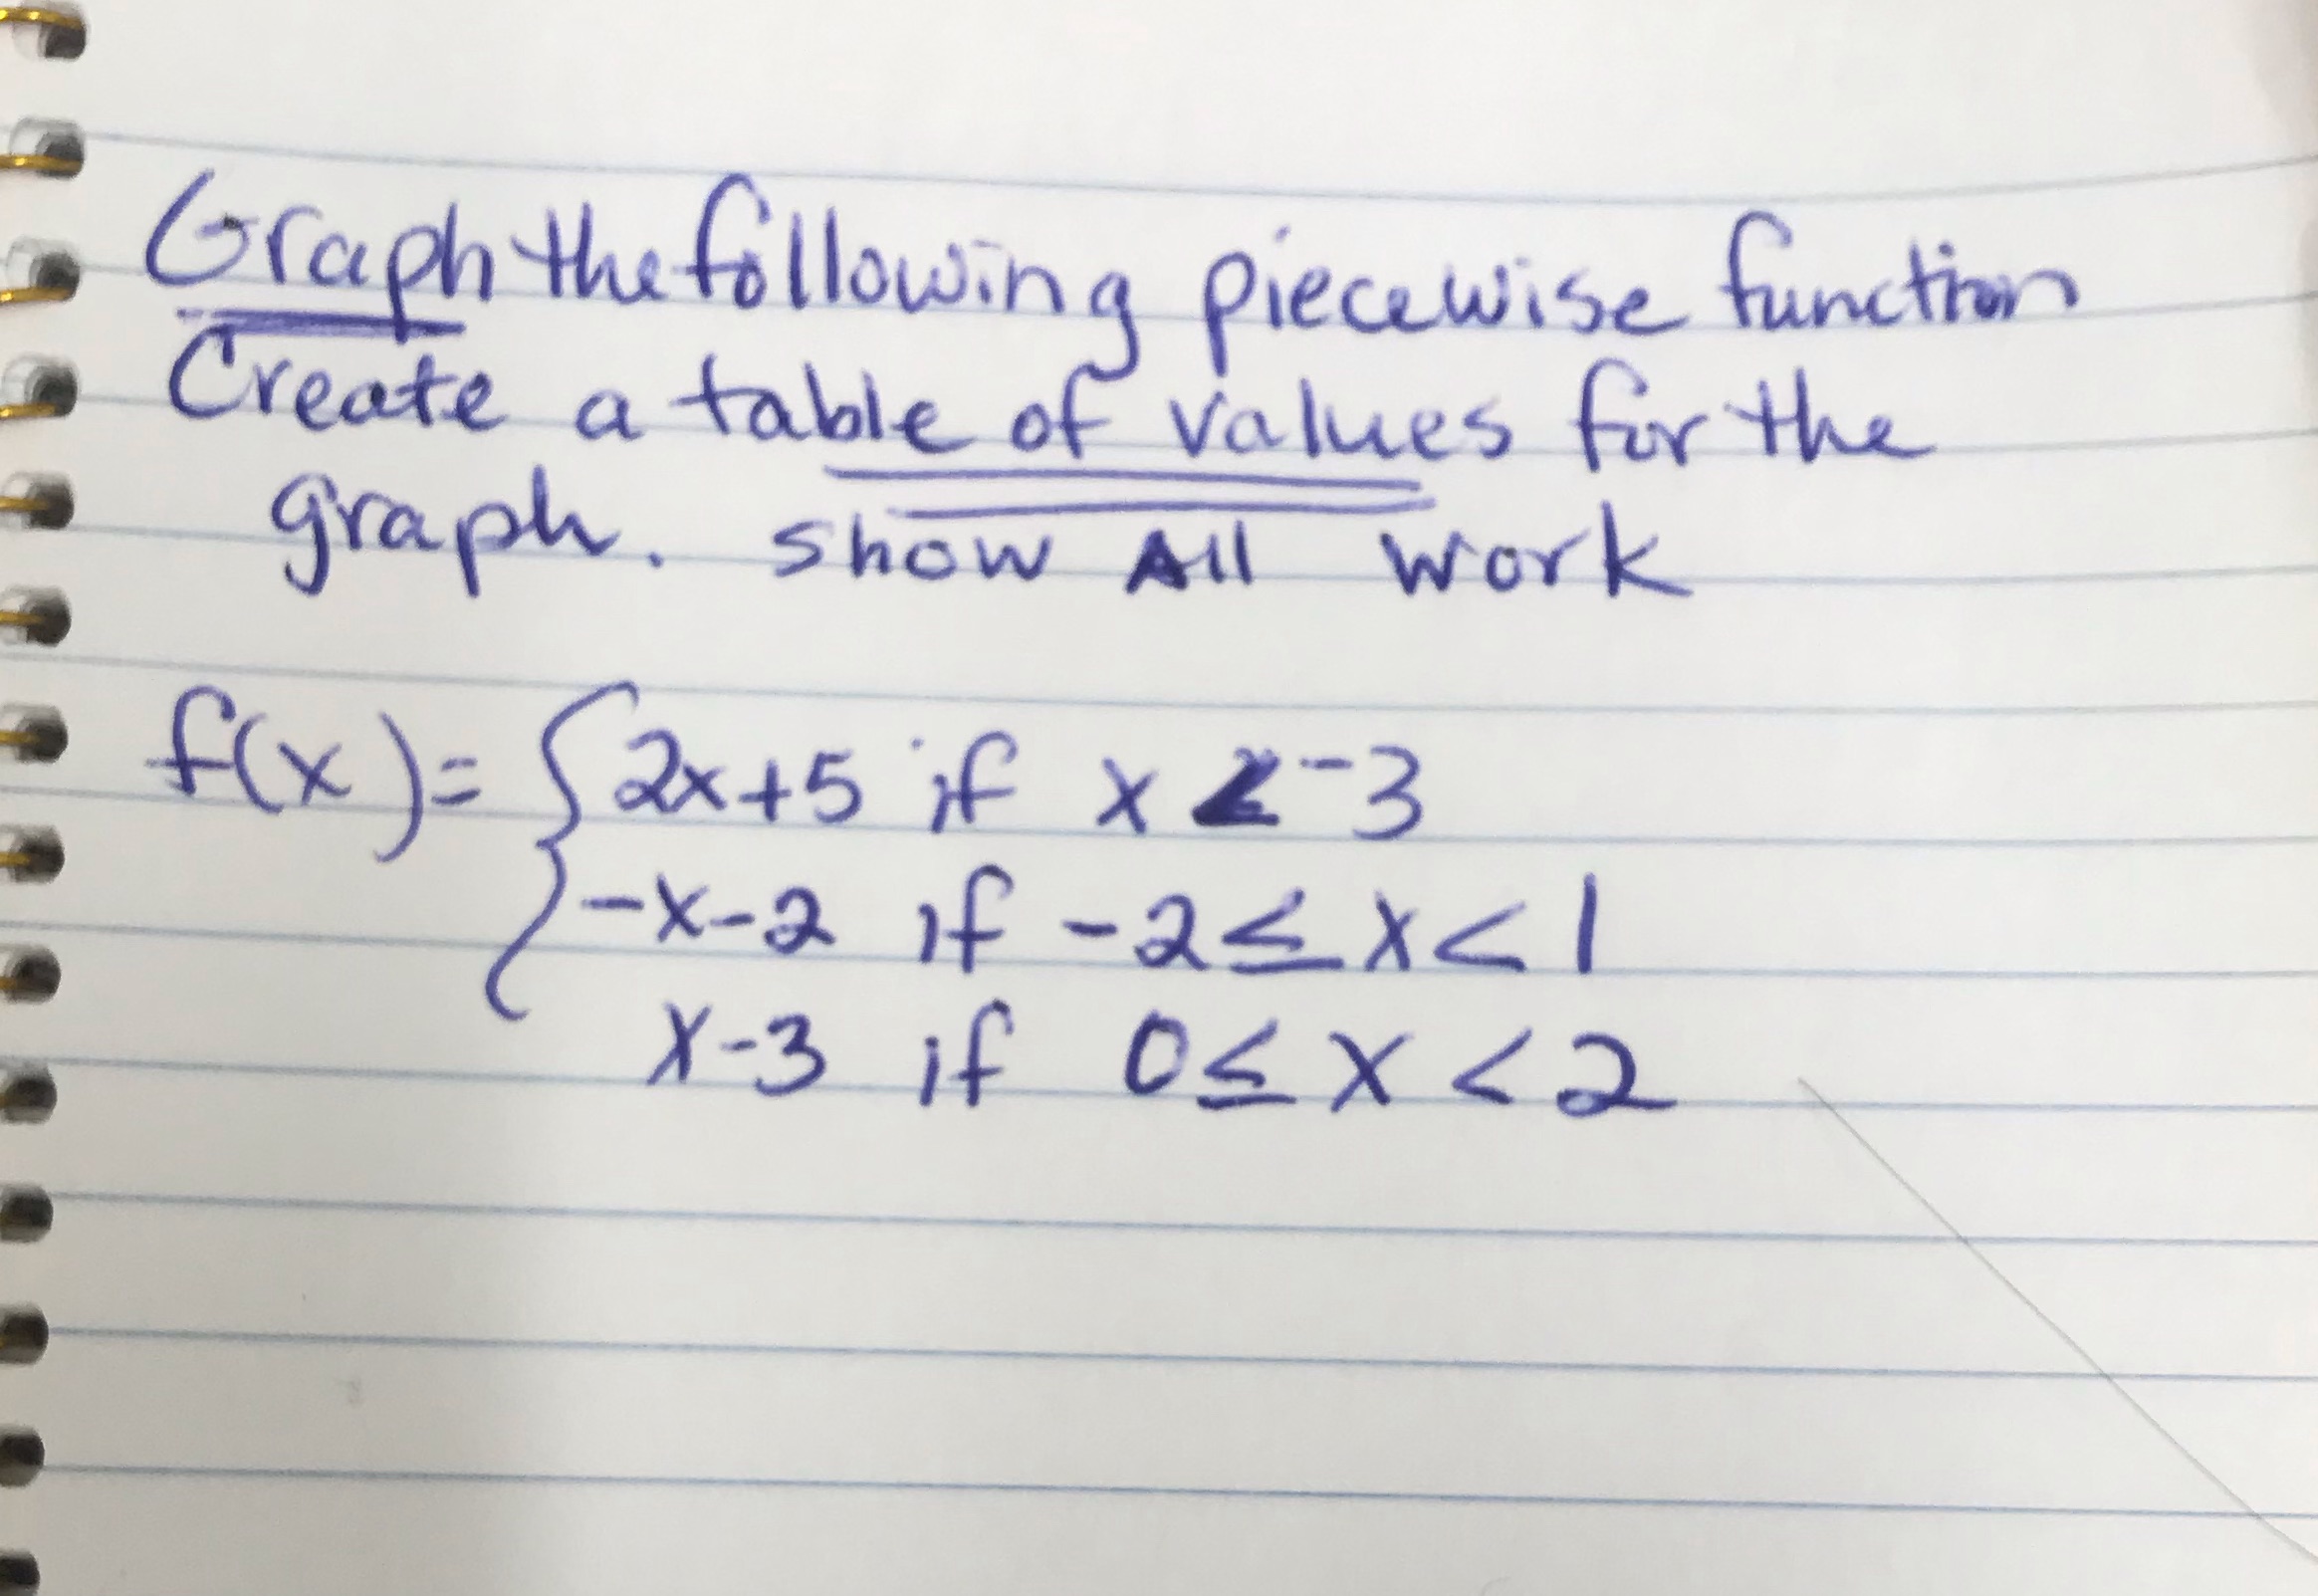 Graph the following piecewise function
Create a table of values for the
graph. show All work
f(x) = { 2x+5 if x < -3
-x-2 if -2 ≤ x < 1
x-3 if 0 ≤ x < 2